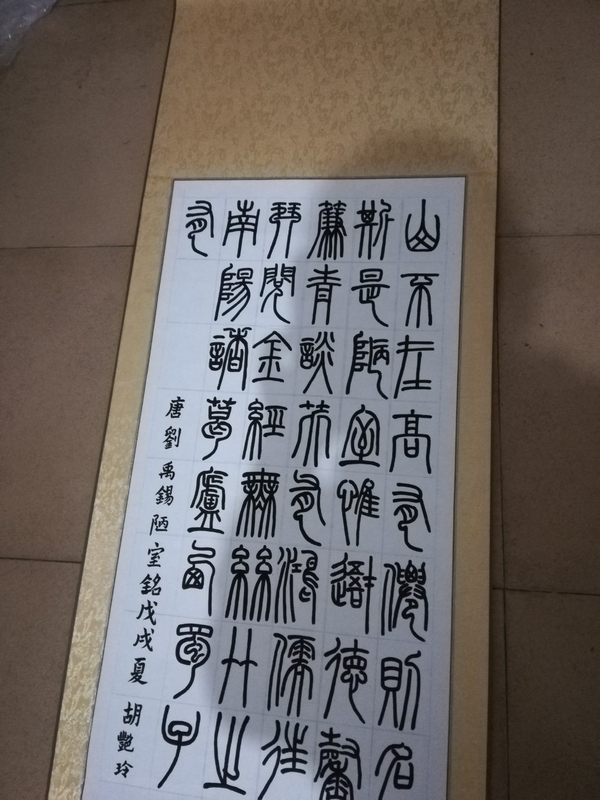 山不在高有僊則名
斯是陋室惟吾德馨
簾青談笑有鴻儒往
琴閱金經無絲竹之
南陽諸葛廬西蜀子
有
唐劉禹錫陋室銘戊戌夏 胡艷玲